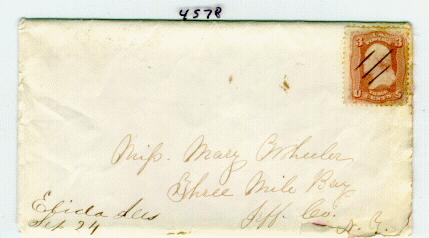 4578
3 U.S. POSTAGE 3
U THREE CENTS S
Miss. Mary Wheeler
Three Mile Bay
Jeff. Co.
N. Y.
Elida Ills
Sep 24